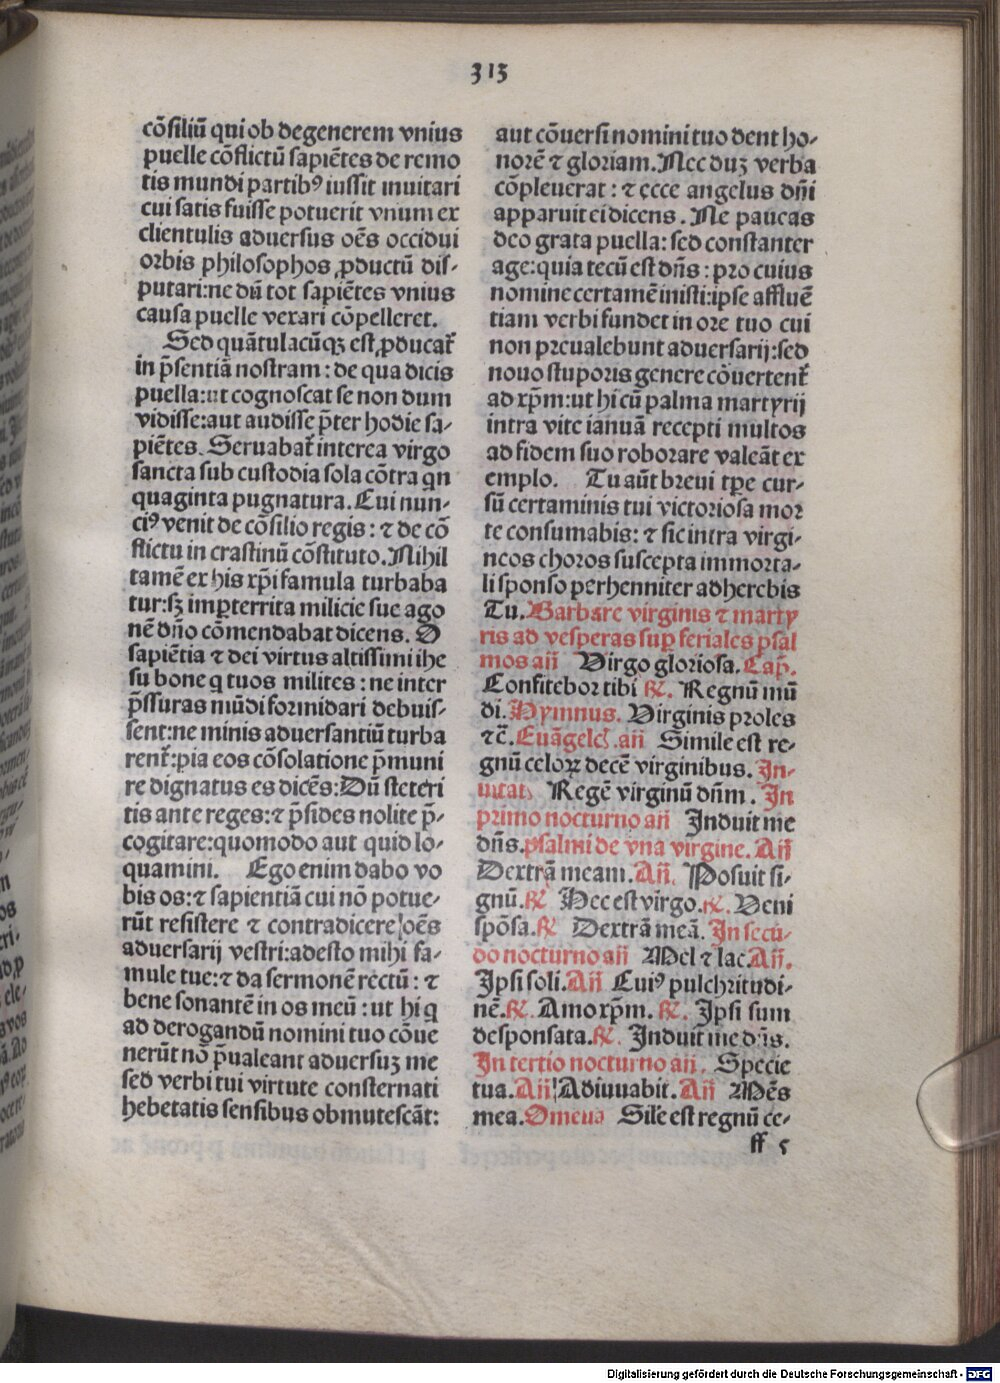 313
cōsiliū qui ob degenerem vnius
puelle cōflictū sapiētes de remo
tis mundi partibꝰ iussit inuitari
cui satis fuisse potuerit vnum ex
clientulis aduersus oēs occidui
orbis philosophos ꝓductū dis-
putari:ne dū tot sapiētes vnius
causa puelle vexari cōpelleret.
Sed quātulacūqꝫ est ꝓducat᷑
in p̄sentiā nostram: de qua dicis
puella:ut cognoscat se non dum
vidisse:aut audisse p̄ter hodie sa-
piētes. Seruabat᷑ interea virgo
sancta sub custodia sola cōtra qn
quaginta pugnatura. Cui nun-
ciꝰ venit de cōsilio regis: ⁊ de cō
flictu in crastinū cōstituto. Nihil
tamē ex his xp̄i famula turbaba
tur:sꝫ imꝑterrita milicie sue ago
nē dn̄o cōmendabat dicens. O
sapiētia ⁊ dei virtus altissimi ihe
su bone q tuos milites: ne inter
p̄ssuras mūdi formidari debuis-
sent:ne minis aduersantiū turba
rent᷑:pia eos cōsolatione p̄muni
re dignatus es dicēs:Dū steteri
tis ante reges:⁊ p̄sides nolite p̄-
cogitare:quomodo aut quid lo-
quamini. Ego enim dabo vo
bis os:⁊ sapientiā cui nō potue-
rūt resistere ⁊ contradicere oēs
aduersarij vestri:adesto mihi fa-
mule tue:⁊ da sermonē rectū: ⁊
bene sonantē in os meū: ut hi q
ad derogandū nomini tuo cōue
nerūt nō p̄ualeant aduersuꝫ me
sed verbi tui virtute consternati
hebetatis sensibus obmutescāt:
aut cōuersi nomini tuo dent ho-
norē ⁊ gloriam. Nec duꝫ verba
cōpleuerat: ⁊ ecce angelus dn̄i
apparuit ei dicens. Ne paueas
deo grata puella: sed constanter
age:quia tecū est dn̄s: pro cuius
nomine certamē inisti:ipse affluē
tiam verbi fundet in ore tuo cui
non preualebunt aduersarij:sed
nouo stuporis genere cōuertent᷑
ad xp̄m:ut hi cū palma martyrij
intra vite ianuā recepti multos
ad fidem suo roborare valeāt ex
emplo. Tu aūt breui tp̄e cur-
sū certaminis tui victoriosa mor
te consumabis: ⁊ sic intra virgi-
neos choros suscepta immorta-
li sponso perhenniter adherebis
Tu. Barbare virginis ⁊ marty
ris ad vesperas suꝑ feriales psal
mos añ Virgo gloriosa. Cap̄.
Confitebor tibi ℟. Regnū mū
di. Hymnus. Virginis proles
⁊c̄. Euāgelꝭ. añ Simile est re-
gnū celoꝝ decē virginibus. In-
uitat Regē virginū dn̄m. In
primo nocturno añ Induit me
dn̄s. psalmi de vna virgine. Añ
Dextrā meam. Añ. Posuit si-
gnū. ℟ Hec est virgo. ℟. Veni
spōsa. ℟ Dextrā meā. In secū-
do nocturno añ Mel ⁊ lac. Añ.
Ipsi soli. Añ Cuiꝰ pulchritudi-
nē. ℟. Amo xp̄m. ℟. Ipsi sum
desponsata. ℟. Induit me dn̄s.
In tertio nocturno añ. Specie
tua. Añ Adiuuabit. Añ Mēs
mea. Omeua Sile est regnū ce-
ff 5
Digitalisierung gefördert durch die Deutsche Forschungsgemeinschaft - DFG